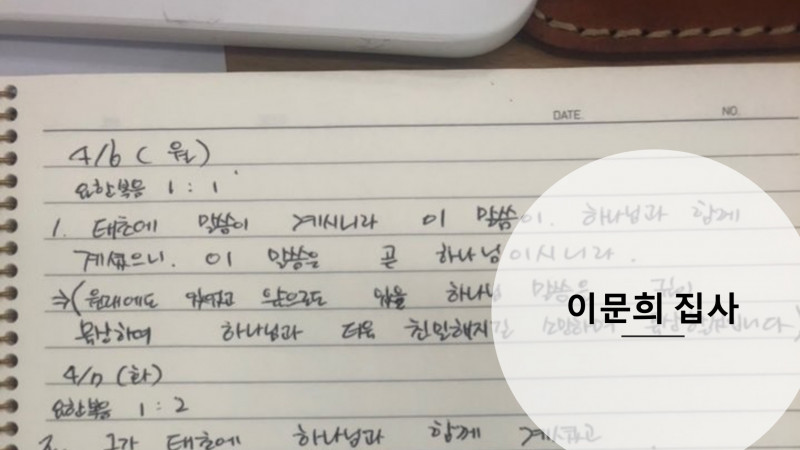 DATE. NO.
4/6 ( 월 )
요한복음 1 : 1
1. 태초에 말씀이 계시니라 이 말씀이 하나님과 함께
계셨으니. 이 말씀은 곧 하나님이시니라.
⇒( 원래에도 있었고 앞으로도 있을 하나님 말씀은
묵상하며 하나님과 더욱 친밀해지길 소망하며
이문희 집사
4/7 (화)
요한복음 1 : 2
2. 그가 태초에 하나님과 함께 계셨고